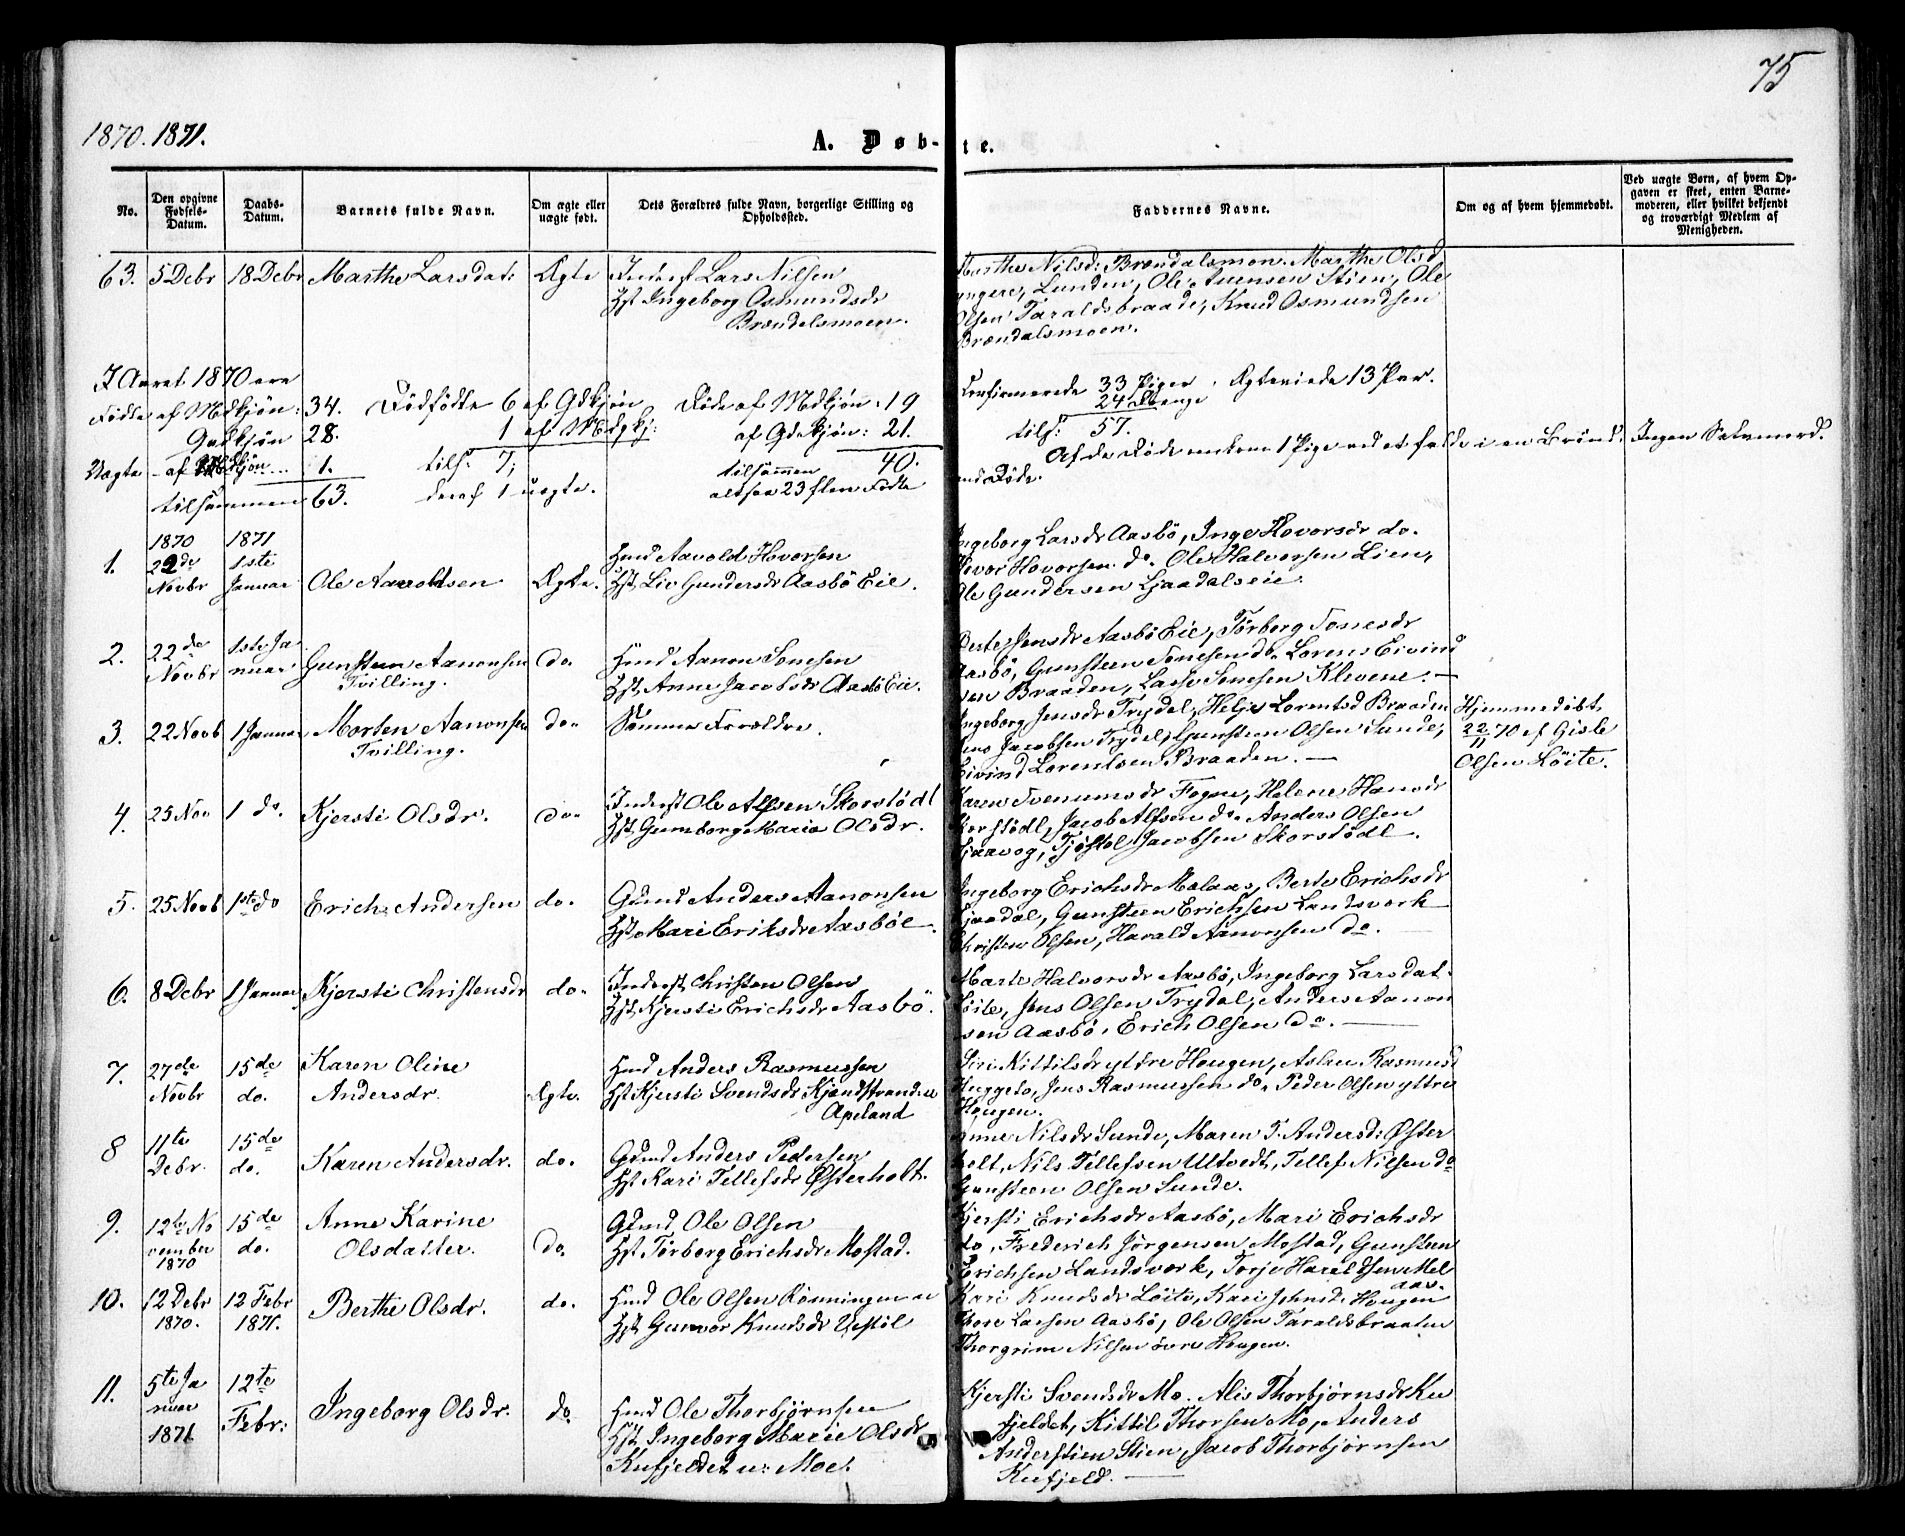 75
1870. 1871.
A. Døb- te.
No.
Den opgivne Fødsels-Datum.
Daabs-Datum.
Barnets fulde Navn.
Om ægte eller uægte født.
Dets Forældres fulde Navn, borgerlige Stilling og Opholdssted.
Faddernes Navne.
Om og af hvem hjemmedøbt.
Ved uægte Børn, af hvem Opgaven er skeet, enten Barnemoderen, eller hvilket bekjendt og troværdigt Medlem af Menigheden.
63. 5 Debr 18 Debr Marthe Larsdat: Ægte Inderst Lars Nilsen
Hst Ingeborg Osmundsdr
Brændalsmoen.
Marthe Nilsd: Brændalsmoen. Marthe Olsd
yngere, Lunden, Ole Stien, Ole
Olsen Taraldsbraade, Knud Osmundsen
Brændalsmoen.
I Aaret 1870 ere
Fødte af Mdkjøn: 34. Dødfødte 6 af Qdkjøn Døde af Mdkjøn: 19
Qvdkjøn 28. 1 af Mdkj: af Qdkjøn: 21.
Uægte - af kjøn... 1. tils: 7; tilsammen 40.
tilsammen 63. deraf 1 uægte. altsaa 23 flere Fødte
Confirmerede 33 Piger. Ægteviede 13 Par.
24 Drenge
tils: 57.
Af de Døde omkom 1 Pige ved at falde i en Brønd. Ingen Selvmord.
end Døde.
1. 1870 22de Novbr 1871 1ste Januar Ole Aavoldsen Ægte. Hmd Aavold Hovorsen
Hst. Liv Gundersdr Aasbö Eie.
Ingeborg Larsdr Aasbö, Inge Hovorsdr do.
Hovor Hovorsen do. Ole Halvorsen Lien,
Ole Gundersen Ljaadalseie.
2. 22de Novbr 1ste Januar Gunsteen Aanonsen Tvilling. do. Hmd Aanon Tonesen
Hst. Anne Jacobsdr Aasbö Eie.
Berte Jensdr Aasbö Eie, Torborg Tonesdr
Aasbö, Gunsteen Tonesen do. Lorens Eivind
sen Braaden, Lars Tonesen Klevene.
3. 22 Novb 1 Januar Morten Aanonsen Tvilling. do. Samme Forældre.
Ingeborg Jensdr Trydal, Helje Lorentsd Braaden
Jens Jacobsen Trydal, Gunsteen Olsen Sunde,
Eivind Lorentsen Braaden.
Hjemmedøbt
22/11 70 af Gisle
Olsen Löite.
4. 25 Nov 1 do. Kjersti Olsdr. do. Inderst Ole Alfsen Skorstödl
Hst. Gunborg Maria Olsdr.
Karen Svenumsdr Fogne, Helene Hansdr
Skorstödl, Jacob Alfsen do. Anders Olsen
Tjöstol Jacobsen Skorstödl.
5. 25 Novb 1ste do Erich Andersen do. Gmd Anders Aanonsen
Hst. Mari Eriksdr Aasböe.
Ingeborg Erichsdr Melaas, Berte Erichsdr
Ljaadal, Gunsteen Erichsen Landsverk
Christen Olsen, Harald Aanonsen do.
6. 8 Debr 1 Januar Kjersti Christensdr do. Inderst Christen Olsen
Hst. Kjersti Erichsdr Aasbö.
Marte Halvorsdr Aasbö, Ingeborg Larsdat.
Löite, Jens Olsen Trydal, Anders Aanon
sen Aasbö, Erich Olsen do.
7. 27de Novbr 15de do. Karen Oline Andersdr. Ægte. Hmd Anders Rasmussen
Hst Kjersti Svendsdr
Apeland
Siri Kittilsdr ytdre Hougen, Aslau Rasmusd
Huggeto, Jens Rasmussen do. Peder Olsen yttre
Hougen.
8 11te Debr. 15de do. Karen Andersdr. do. Gmd Anders Pedersen
Hst Kari Tellefsdr Østerholt.
Anne Nilsdr Sunde, Maren T. Andersd: Øster
holt, Nils Tellefsen Utvedt, Tellef Nilsen do
Gunsteen Olsen Sunde.
9. 12te November 1870 15de do. Anne Karine Olsdatter. do. Gmd Ole Olsen
Hst Torborg Erichsdr Mostad.
Kjersti Erichsdr Aasbö, Mari Erichsdr
do, Frederich Jörgensen Mostad, Gunsteen
Erichsen Landsverk, Torje Haraldsen Mel
aas.
10. 12 Debr 1870. 12 Febr 1871. Berthe Olsdr. do. Hmd Ole Olsen Rönningen
Hst Gunvor Knudsdr Vestöl
Kari Knudsdr Löite, Kari Johnsd. Hougen
Thore Larsen Aasbö, Ole Olsen Taraldsbraaten
Thorgrim Nilsen övre Hougen.
11. 5te Januar 1871 12te Febr: Ingeborg Olsdr. do. Hmd Ole Thorbjörnsen
Hst. Ingeborg Marie Olsdr
Kufjeldet u: Moe.
Kjersti Svendsdr Mo. Alis Thorbjörnsdr Ku
fjeldet, Kittil Thorsen Mo, Anders
Stien, Jacob Thorbjörnsen
Kufjeld.